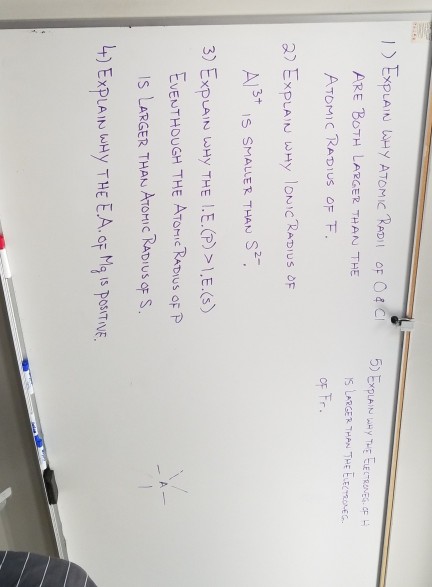 1) EXPLAIN WHY ATOMIC RADII OF O & Cl
ARE BOTH LARGER THAN THE
ATOMIC RADIUS OF F.
2) EXPLAIN WHY IONIC RADIUS OF
Al³⁺ IS SMALLER THAN S²⁻.
3) EXPLAIN WHY THE I.E.(P) > I.E.(S)
EVENTHOUGH THE ATOMIC RADIUS OF P
IS LARGER THAN ATOMIC RADIUS OF S.
4) EXPLAIN WHY THE E.A. OF Mg IS POSITIVE.
5) EXPLAIN WHY THE ELECTRONEG. OF H
IS LARGER THAN THE ELECTRONEG.
OF Fr.
A